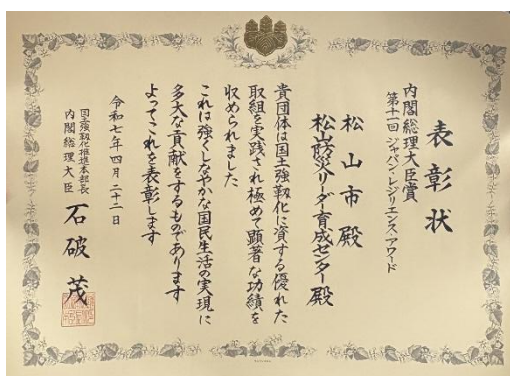 表彰状
内閣総理大臣賞
第十一回 ジャパン・レジリエンス・アワード
松山市殿
松山防災リーダー育成センター殿
貴団体は国土強靱化に資する優れた
取組を実践され極めて顕著な功績を
収められました
これは強くしなやかな国民生活の実現に
多大な貢献をするものであります
よってこれを表彰します
令和七年四月二十二日
国土強靱化推進本部長
内閣総理大臣 石破茂